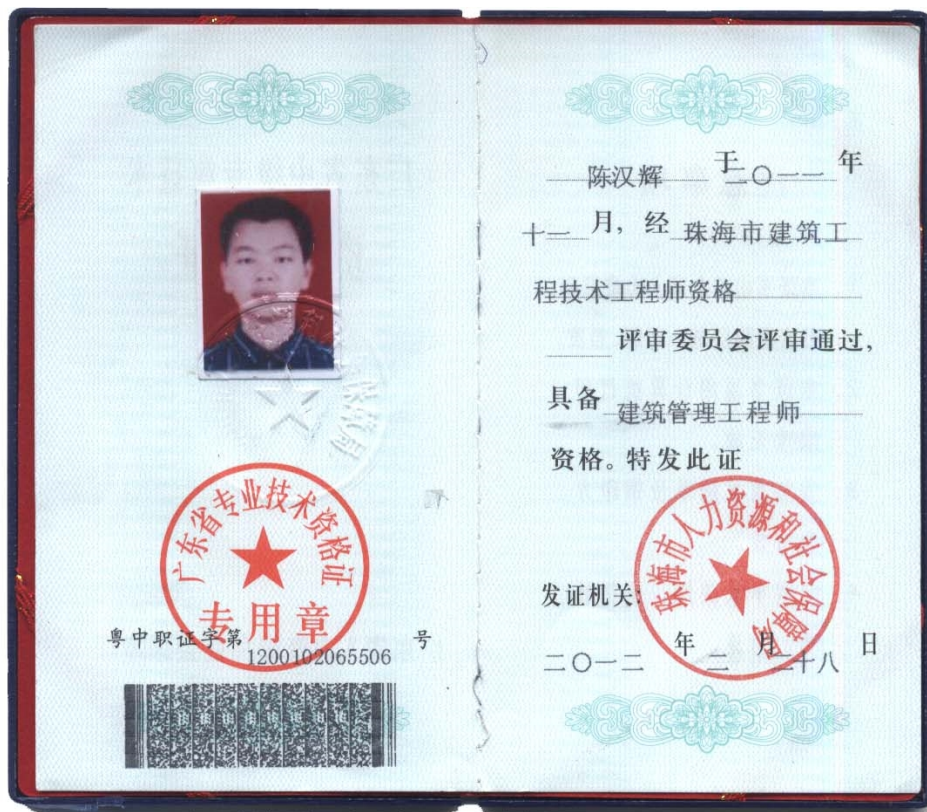 广东省专业技术资格证
专用章
粤中职证字第 1200102065506 号
陈汉辉 于二〇一一年
十一月，经 珠海市建筑工
程技术工程师资格
评审委员会评审通过，
具备 建筑管理工程师
资格。特发此证
珠海市人力资源和社会保障局
发证机关:
二〇一二年二月二十八日